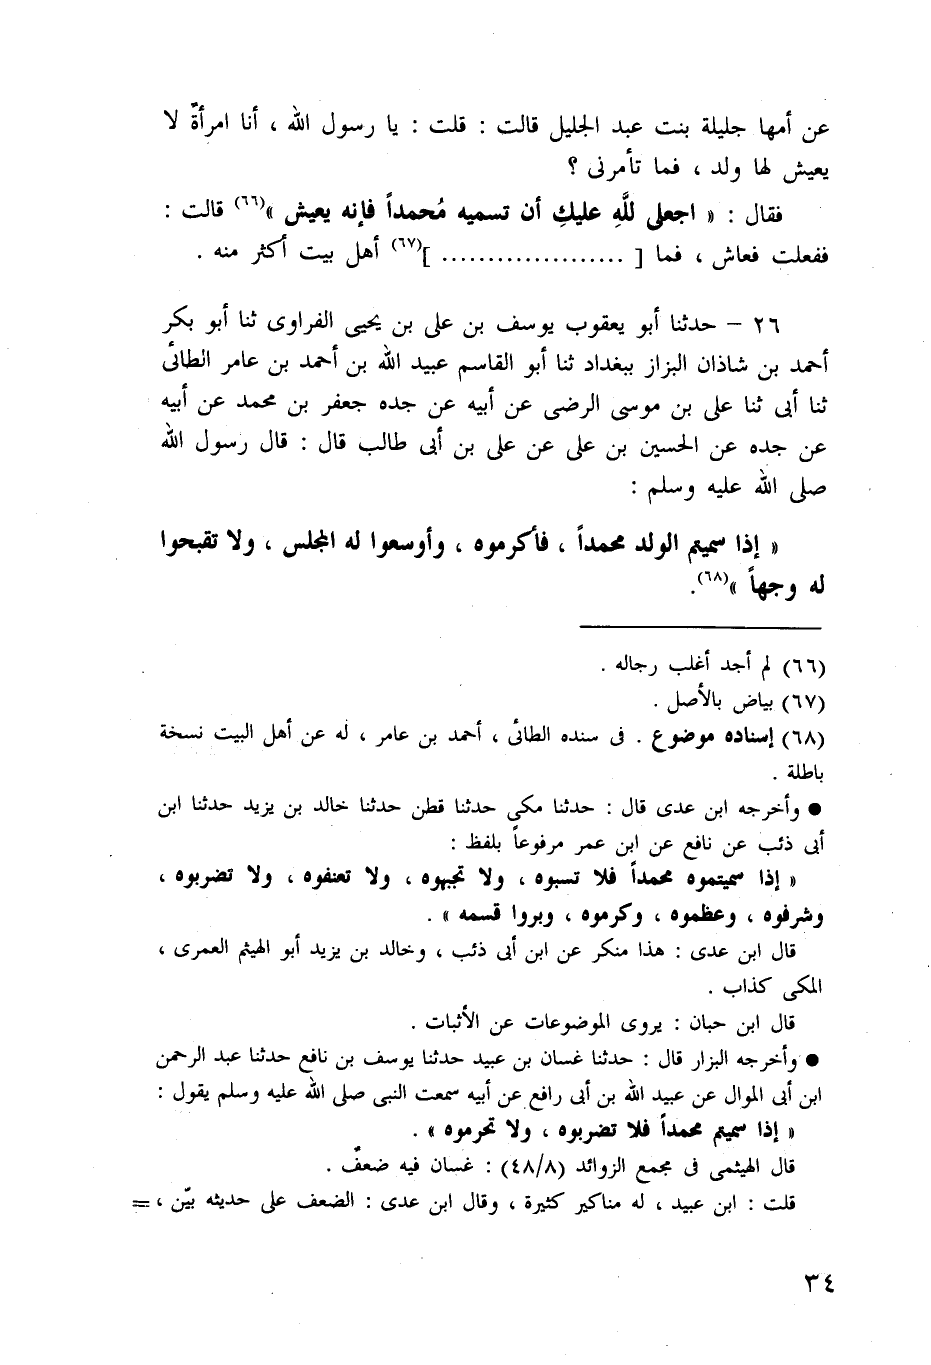 عن أمها جليلة بنت عبد الجليل قالت : قلت : يا رسول الله ، أنا امرأةٌ لا
يعيش لها ولد ، فما تأمرنى ؟
فقال : « اجعلى للَّهِ عليكِ أن تسميه مُحمداً فإنه يعيش »(٦٦) قالت :
ففعلت فعاش ، فما [ .................... ](٦٧) أهل بيت أكثر منه .
٢٦ – حدثنا أبو يعقوب يوسف بن على بن يحيى الفراوى ثنا أبو بكر
أحمد بن شاذان البزاز ببغداد ثنا أبو القاسم عبيد الله بن أحمد بن عامر الطائى
ثنا أبى ثنا على بن موسى الرضى عن أبيه عن جده جعفر بن محمد عن أبيه
عن جده عن الحسين بن على عن على بن أبى طالب قال : قال رسول الله
صلى الله عليه وسلم :
« إذا سميتم الولد محمداً ، فأكرموه ، وأوسعوا له المجلس ، ولا تقبحوا
له وجهاً »(٦٨).
(٦٦) لم أجد أغلب رجاله .
(٦٧) بياض بالأصل .
(٦٨) إسناده موضوع . فى سنده الطائى ، أحمد بن عامر ، له عن أهل البيت نسخة
باطلة .
● وأخرجه ابن عدى قال : حدثنا مكى حدثنا قطن حدثنا خالد بن يزيد حدثنا ابن
أبى ذئب عن نافع عن ابن عمر مرفوعاً بلفظ :
« إذا سميتموه محمداً فلا تسبوه ، ولا تجبهوه ، ولا تعنفوه ، ولا تضربوه ،
وشرفوه ، وعظموه ، وكرموه ، وبروا قسمه » .
قال ابن عدى : هذا منكر عن ابن أبى ذئب ، وخالد بن يزيد أبو الهيثم العمرى ،
المكى كذاب .
قال ابن حبان : يروى الموضوعات عن الأثبات .
● وأخرجه البزار قال : حدثنا غسان بن عبيد حدثنا يوسف بن نافع حدثنا عبد الرحمن
ابن أبى الموال عن عبيد الله بن أبى رافع عن أبيه سمعت النبى صلى الله عليه وسلم يقول :
« إذا سميتم محمداً فلا تضربوه ، ولا تحرموه » .
قال الهيثمى فى مجمع الزوائد (٤٨/٨) : غسان فيه ضعفٌ .
قلت : ابن عبيد ، له مناكير كثيرة ، وقال ابن عدى : الضعف على حديثه بيّن ، =
٣٤